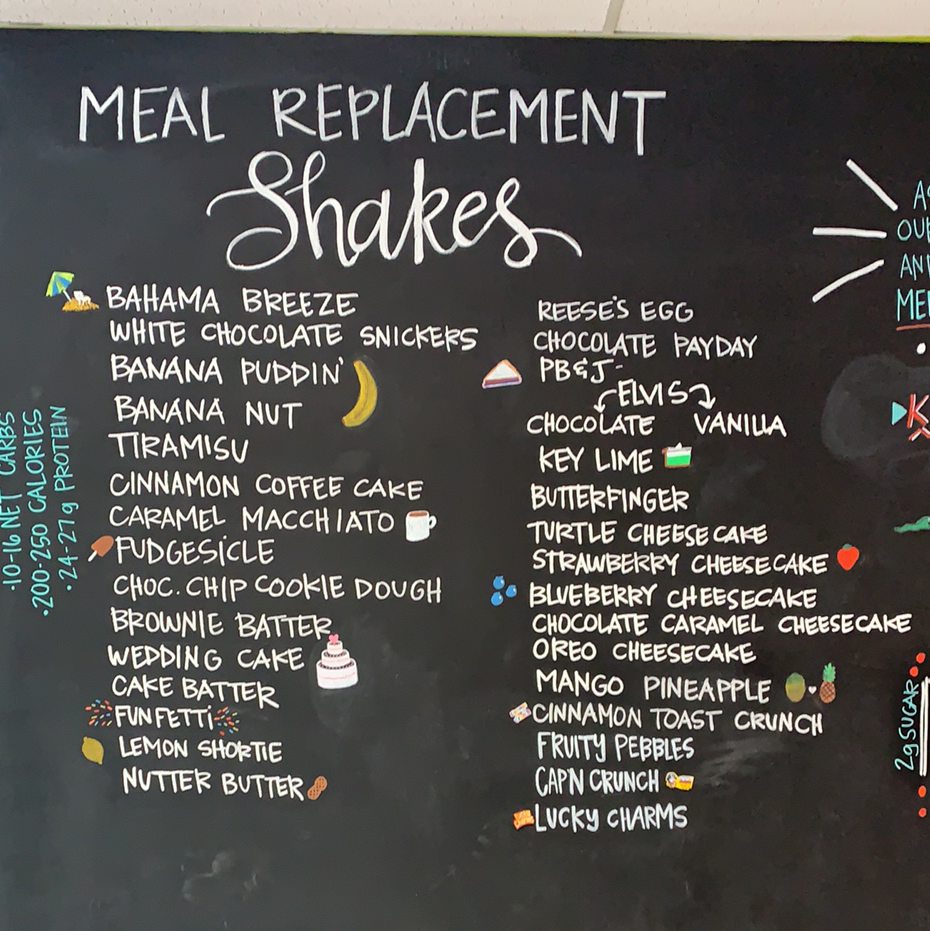 MEAL REPLACEMENT
Shakes
BAHAMA BREEZE
WHITE CHOCOLATE SNICKERS
BANANA PUDDIN'
BANANA NUT
TIRAMISU
CINNAMON COFFEE CAKE
CARAMEL MACCHIATO
FUDGESICLE
CHOC. CHIP COOKIE DOUGH
BROWNIE BATTER
WEDDING CAKE
CAKE BATTER
FUNFETTI
LEMON SHORTIE
NUTTER BUTTER
REESE'S EGG
CHOCOLATE PAYDAY
PB&J-
ELVIS
CHOCOLATE VANILLA
KEY LIME
BUTTERFINGER
TURTLE CHEESECAKE
STRAWBERRY CHEESECAKE
BLUEBERRY CHEESECAKE
CHOCOLATE CARAMEL CHEESECAKE
OREO CHEESECAKE
MANGO PINEAPPLE
CINNAMON TOAST CRUNCH
FRUITY PEBBLES
CAP'N CRUNCH
LUCKY CHARMS
·10-16 NET CARBS
·200-250 CALORIES
·24-27g PROTEIN
2g SUGAR